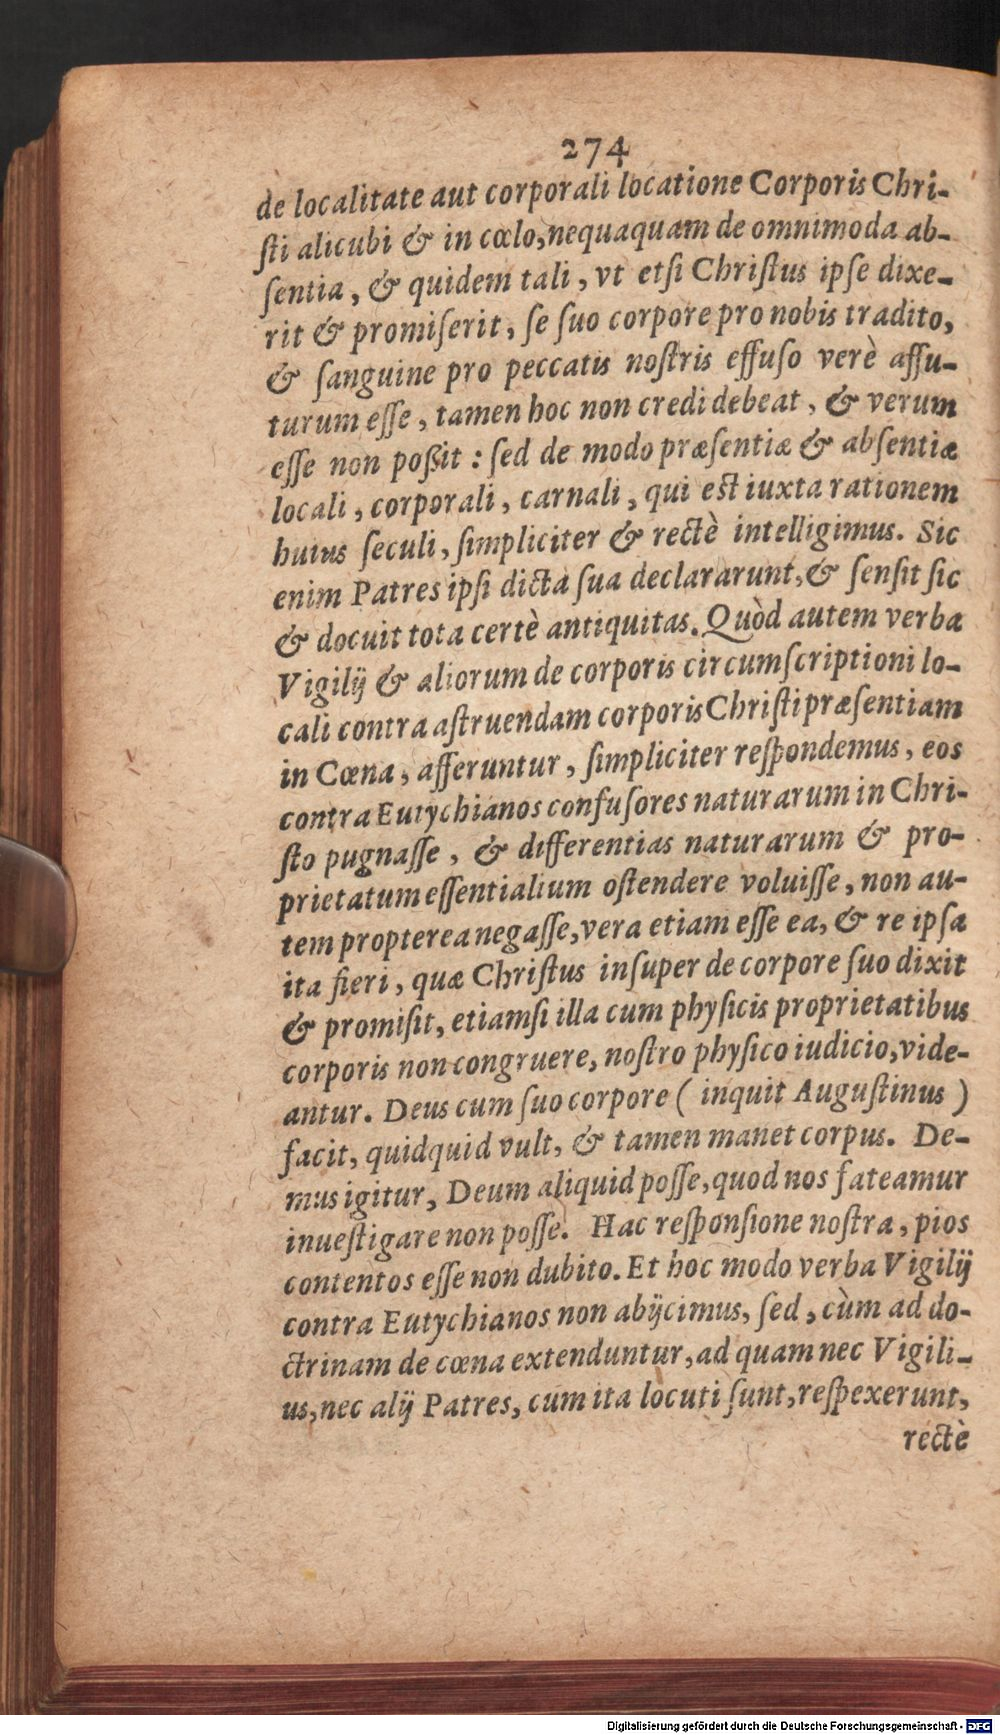 274
de localitate aut corporali locatione Corporis Chri-
ſti alicubi & in cœlo, nequaquam de omnimoda ab-
ſentia, & quidem tali, vt etſi Chriſtus ipſe dixe-
rit & promiſerit, ſe ſuo corpore pro nobis tradito,
& ſanguine pro peccatis noſtris effuſo verè affu-
turum eſſe, tamen hoc non credi debeat, & verum
eſſe non poßit: ſed de modo præſentiæ & abſentiæ
locali, corporali, carnali, qui est iuxta rationem
huius ſeculi, ſimpliciter & rectè intelligimus. Sic
enim Patres ipſi dicta ſua declararunt, & ſenſit ſic
& docuit tota certè antiquitas. Quòd autem verba
Vigilij & aliorum de corporis circumſcriptioni lo-
cali contra aſtruendam corporis Chriſti præſentiam
in Cœna, afferuntur, ſimpliciter reſpondemus, eos
contra Eutychianos confuſores naturarum in Chri-
ſto pugnaſſe, & differentias naturarum & pro-
prietatum eſſentialium oſtendere voluiſſe, non au-
tem propterea negaſſe, vera etiam eſſe ea, & re ipſa
ita fieri, quæ Chriſtus inſuper de corpore ſuo dixit
& promiſit, etiamſi illa cum phyſicis proprietatibus
corporis non congruere, noſtro phyſico iudicio, vide-
antur. Deus cum ſuo corpore ( inquit Auguſtinus )
facit, quidquid vult, & tamen manet corpus. De-
mus igitur, Deum aliquid poſſe, quod nos fateamur
inueſtigare non poſſe. Hac reſponſione noſtra, pios
contentos eſſe non dubito. Et hoc modo verba Vigilij
contra Eutychianos non abijcimus, ſed, cùm ad do-
ctrinam de cœna extenduntur, ad quam nec Vigili-
us, nec alij Patres, cum ita locuti ſunt, reſpexerunt,
rectè
Digitalisierung gefördert durch die Deutsche Forschungsgemeinschaft - DFG